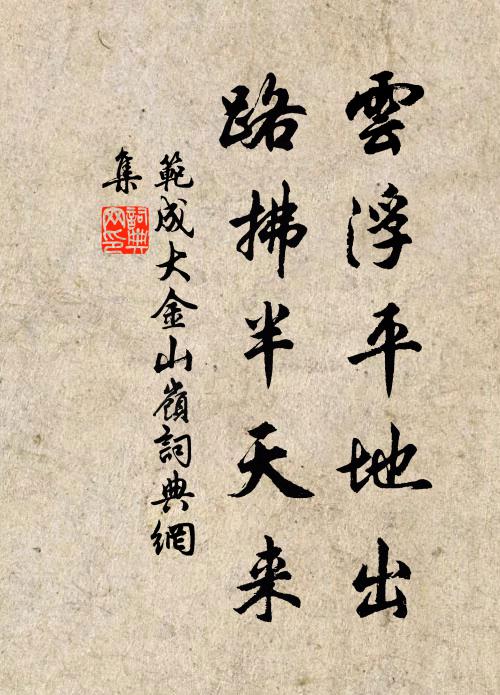 雲浮平地出
路拂半天来
範成大金山嶺詞典網
集
詞典网印